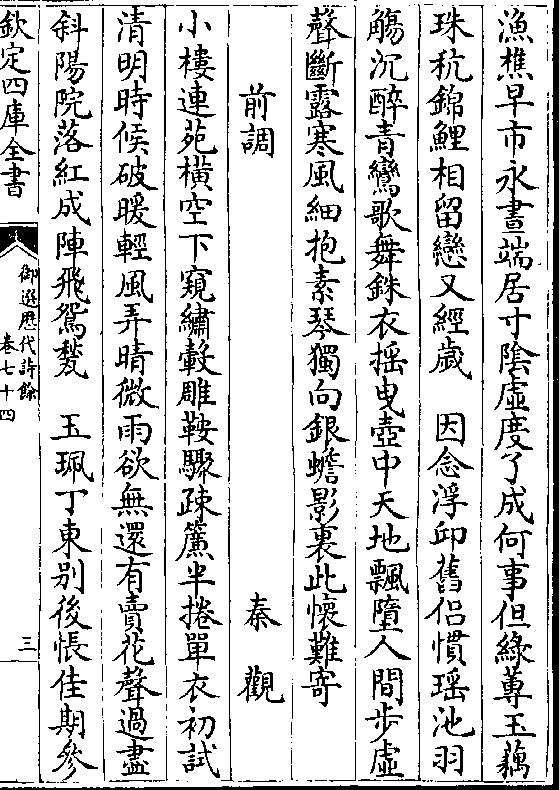 漁樵早市永晝端居寸陰虛度了成何事但緣蓴玉藕
珠秔錦鯉相留戀又經歲　因念浮邱舊侶慣瑶池羽
觴沉醉青鸞歌舞銖衣揺曵壺中天地飄墮人間步虛
聲斷露寒風細抱素琴獨向銀蟾影裏此懷難寄
前調　秦觀
小樓連苑橫空下窺繡轂雕鞍驟疎簾半捲單衣初試
清明時候破暖輕風弄晴微雨欲無還有賣花聲過盡
斜陽院落紅成陣飛鴛甃　玉珮丁東別後悵佳期參
欽定四庫全書
御選歴代詩餘
卷七十四
三